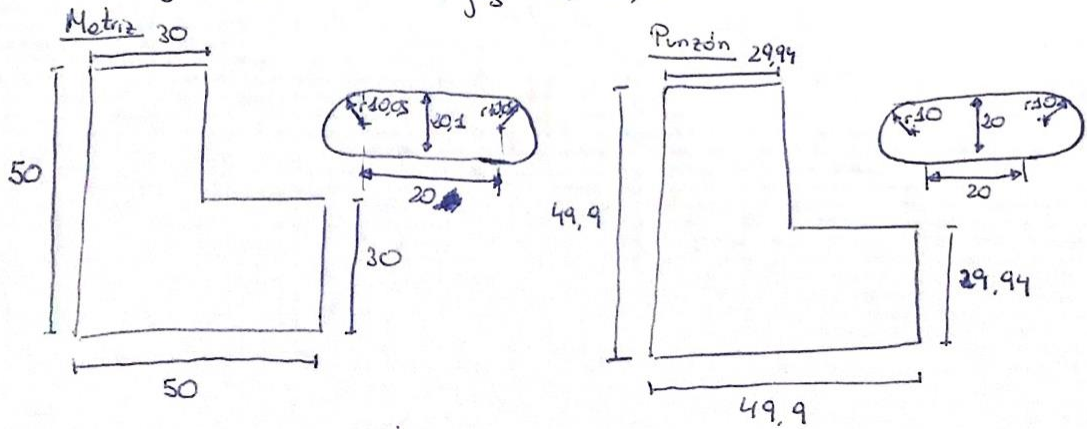 Matriz 30
50
r10,05
20,1
r10,05
20
30
50
Punzón 29,94
49,9
r10
20
r10
20
29,94
49,9